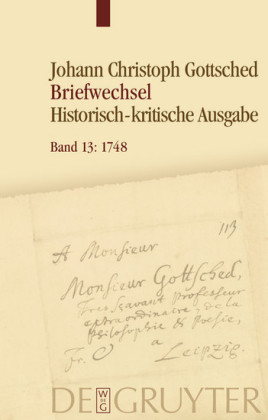 Johann Christoph Gottsched
Briefwechsel
Historisch-kritische Ausgabe
Band 13: 1748
113
A Monsieur
Monsieur Gottsched,
Tres scavant Professeur
extraordinaire, de la
Philosophie & Poesie,
Fr. a Leipzig.
W
DE
G
DE GRUYTER